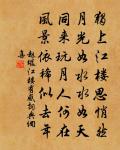 獨上江樓思悄然
月光如水水如天
同來玩月人何在
風景依稀似去年
趙嘏江樓有感詞典網